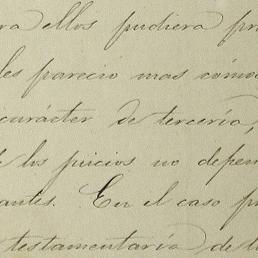 ra ellos pudiera pr
les parecio mas cómo
carácter de tercería,
e los juicios no depen
antes. En el caso p
testamentaría de l